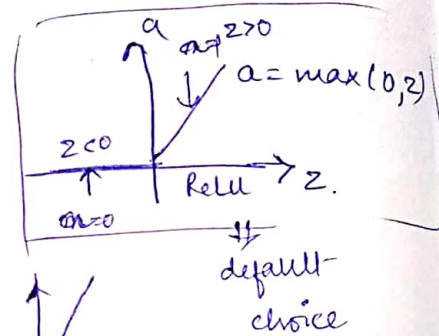 a
z>0
a = max(0,z)
z<0
ReLU
z.
m=0
default
choice